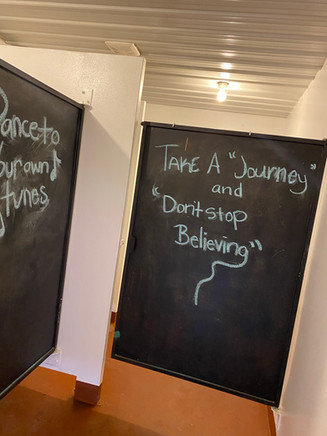 Dance to
Your own
tunes
TAKE A "Journey"
and
"Don't stop
Believing"